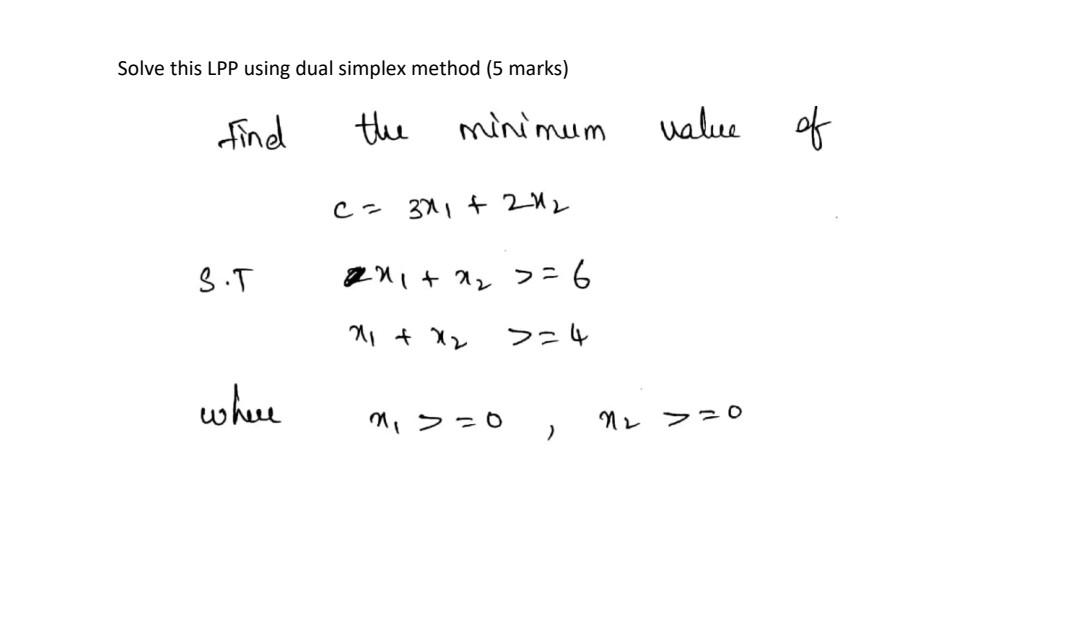 Solve this LPP using dual simplex method (5 marks)
Find the minimum value of
C = 3x₁ + 2x₂
S.T 2x₁ + x₂ >= 6
x₁ + x₂ >= 4
where x₁ >= 0 , x₂ >= 0